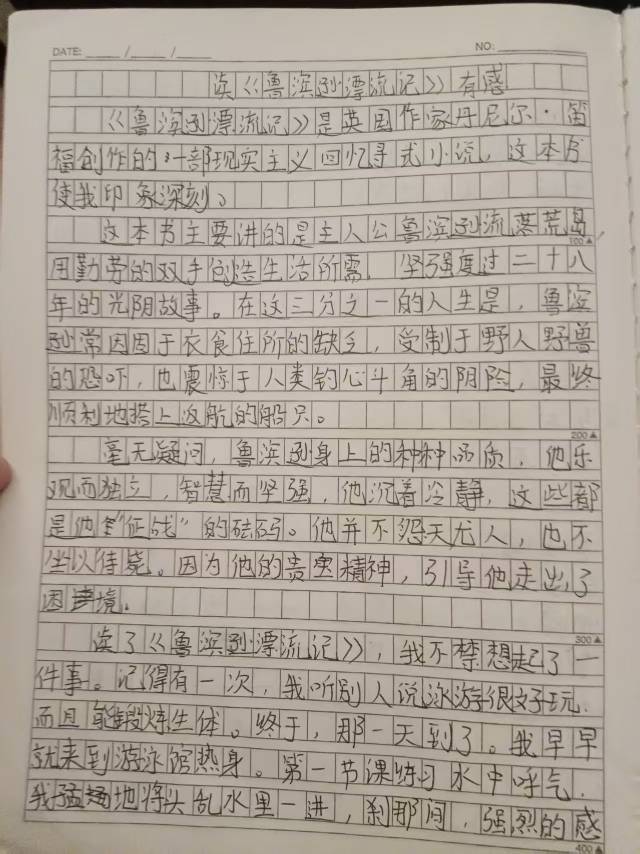 DATE: ____/____/____ NO: ____
读《鲁滨孙漂流记》有感
《鲁滨孙漂流记》是英国作家丹尼尔·笛
福创作的一部现实主义回忆寻式小说，这本书
使我印象深刻。
这本书主要讲的是主人公鲁滨孙流落荒岛
100
用勤劳的双手创造生活所需，坚强度过二十八
年的光阴故事。在这三分之一的人生是，鲁滨
孙常因困于衣食住所的缺乏，受制于野人野兽
的恐吓，也震惊于人类钓心斗角的阴险，最终
顺利地搭上返航的船只。
200
毫无疑问，鲁滨孙身上的种种品质，他乐
观而独立，智慧而坚强，他沉着冷静，这些都
是他"征战"的砝码。他并不怨天尤人，也不
坐以待毙。因为他的贵宝精神，引导他走出了
困境。
300
读了《鲁滨孙漂流记》，我不禁想起了一
件事。记得有一次，我听别人说泳游很好玩，
而且能锻炼生体。终于，那一天到了。我早早
就来到游泳馆热身。第一节课练习水中呼气，
我猛地将头乱水里一进，刹那间，强烈的感
400